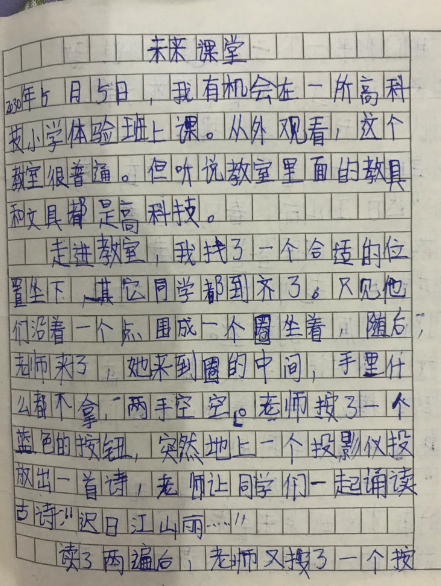 未来课堂
2030年5月5日，我有机会在一所高科
技小学体验班上课。从外观看，这个
教室很普通。但听说教室里面的教具
和文具都是高科技。
走进教室，我找了一个合适的位
置坐下，其它同学都到齐了。只见他
们沿着一个点围成一个圈坐着，随后，
老师来了，她来到圈的中间，手里什
么都不拿，两手空空。老师按了一个
蓝色的按钮，突然地上一个投影仪投
放出一首诗，老师让同学们一起诵读
古诗：“迟日江山丽……”
读了两遍后，老师又按了一个按